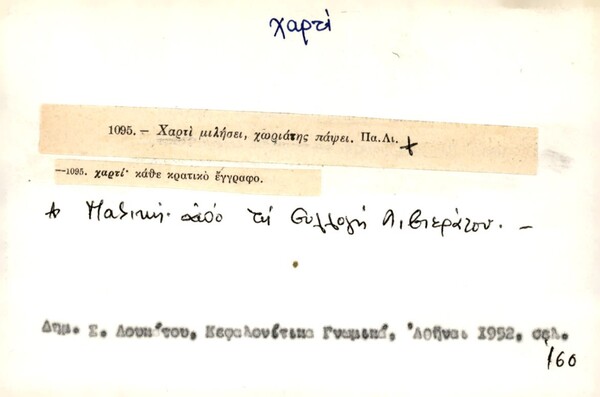 χαρτὶ
1095. – Χαρτὶ μιλήσει, χωριάτης πάψει. Πα.Λι. +
—1095. χαρτί· κάθε κρατικὸ ἔγγραφο.
+ ἀπὸ τὴ Συλλογὴ Λιβιεράτου. –
Δημ. Σ. Λουκάτου, Κεφαλονίτικα Γνωμικά, Ἀθῆναι 1952, σελ.
160